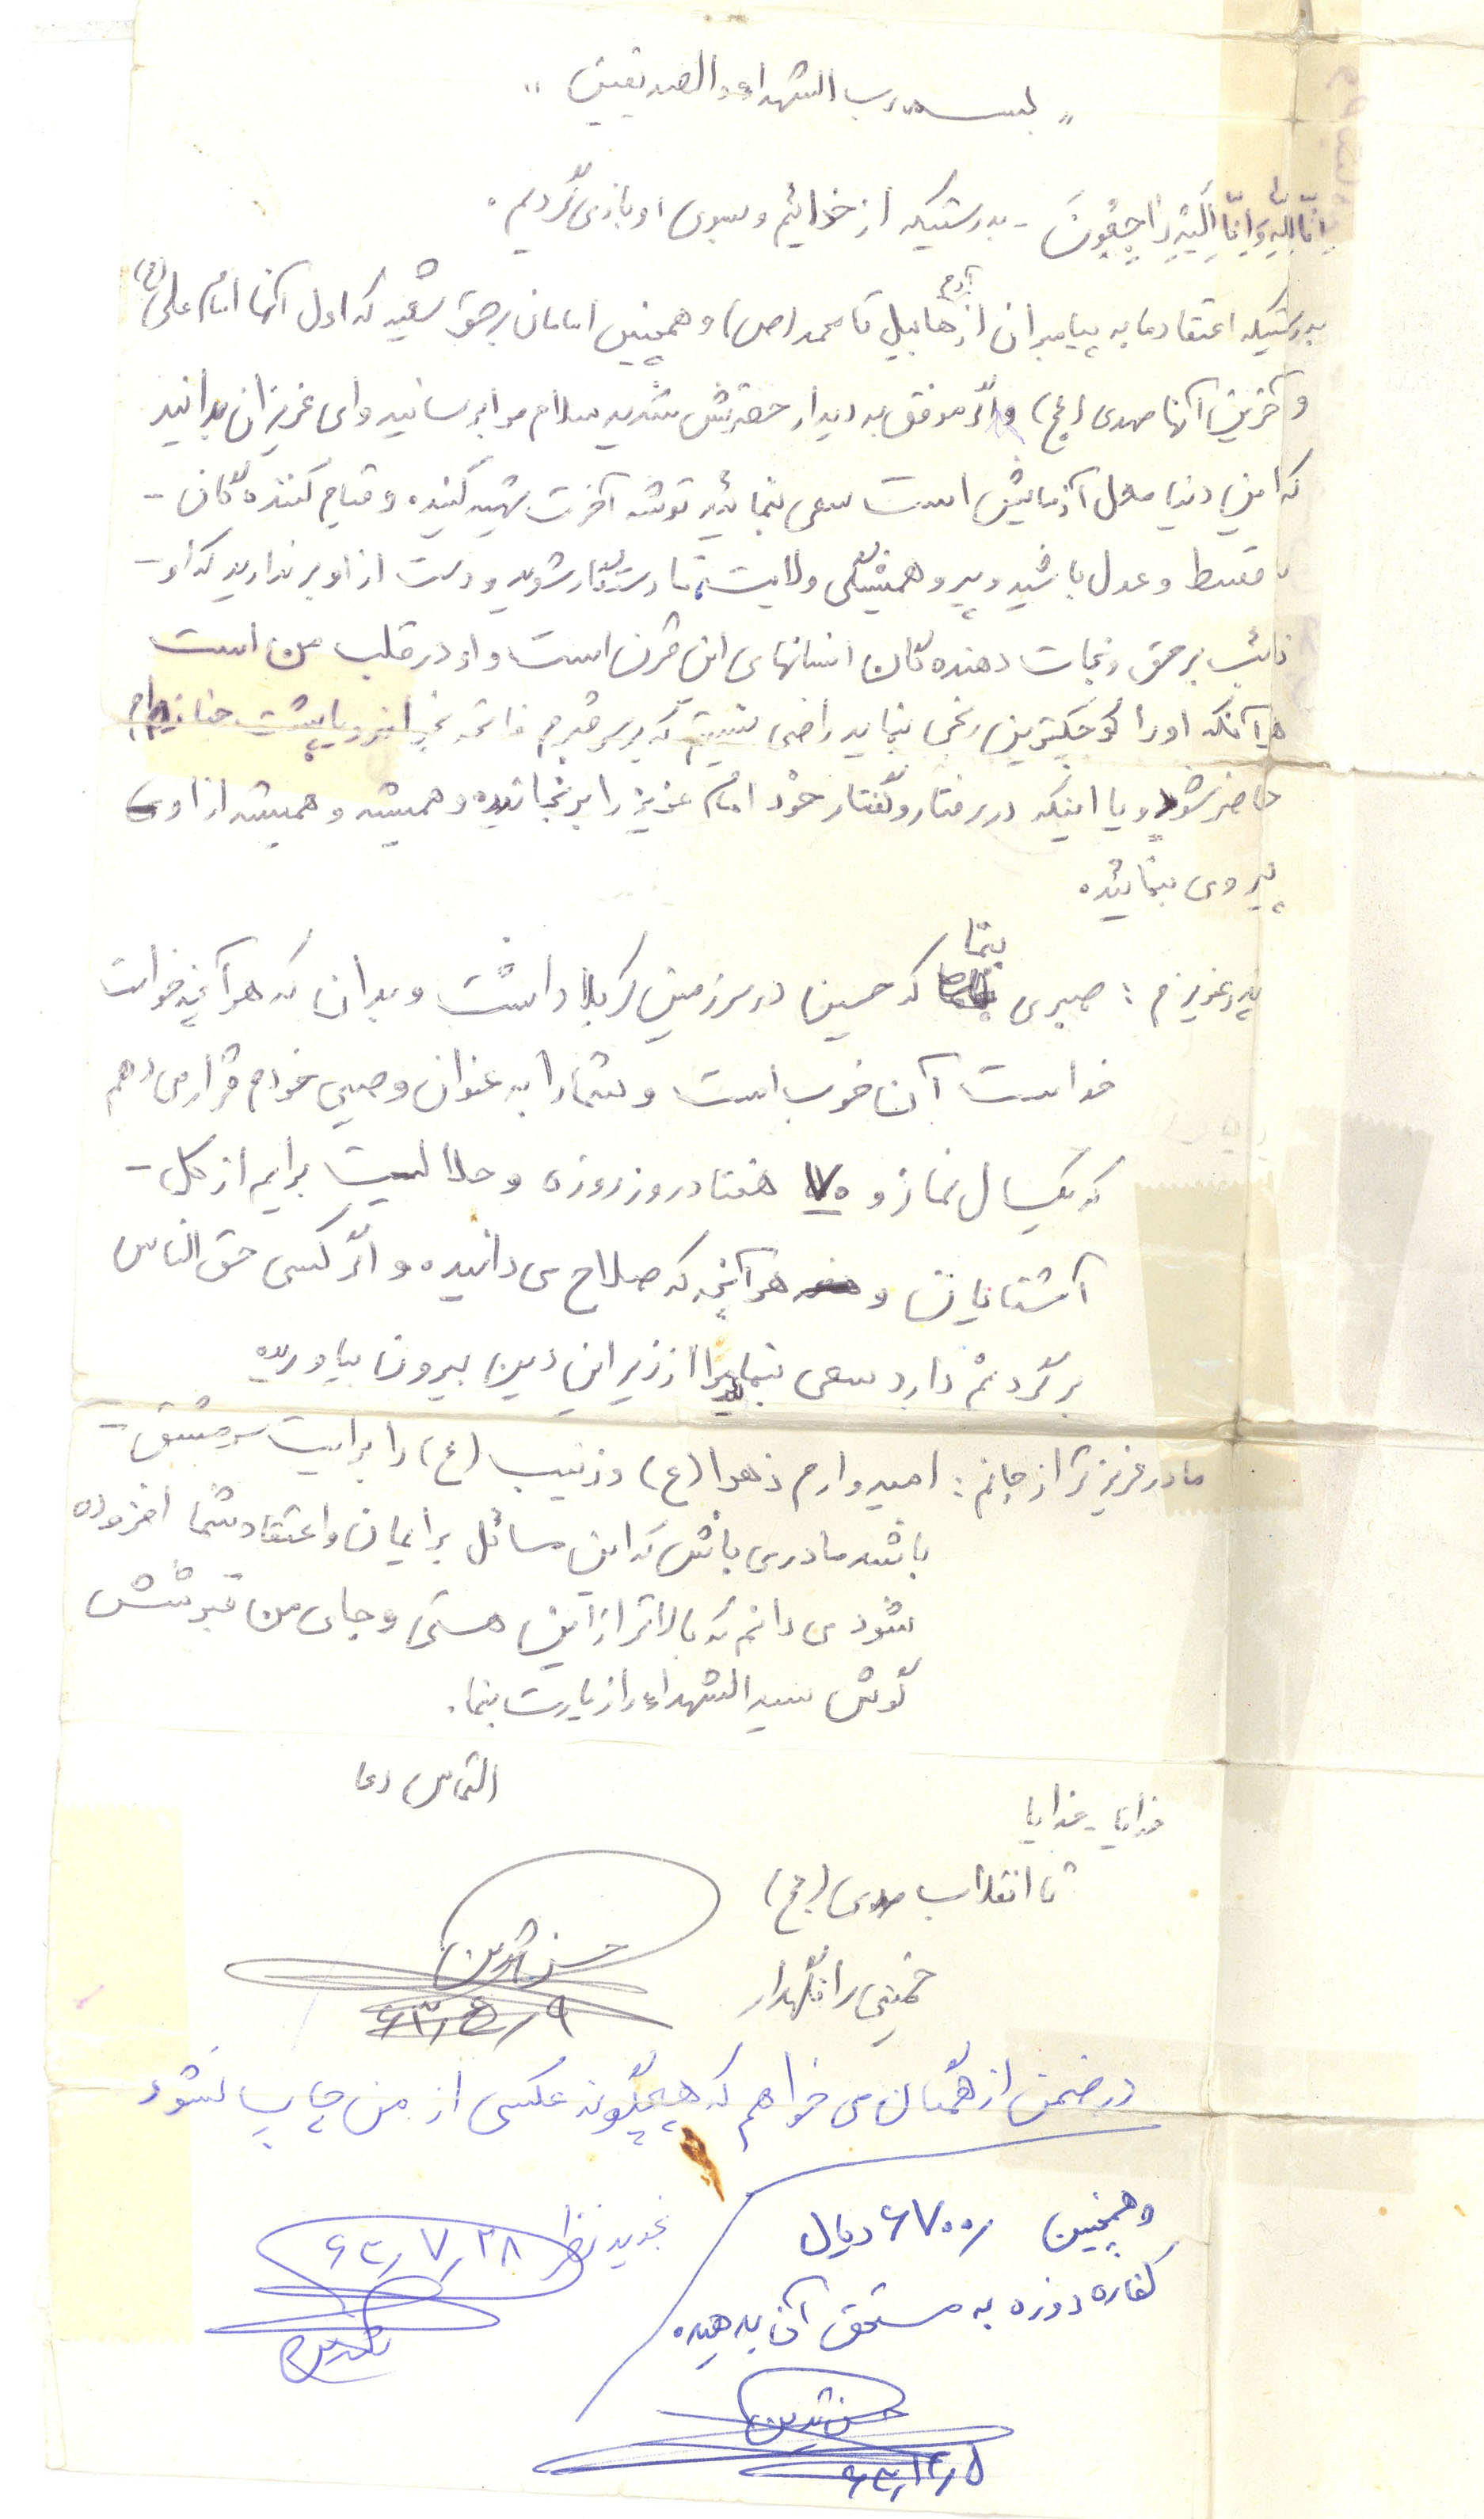 " بسمه رب الشهداء و الصدیقین "
اِنّا لِلّهِ وَ اِنّا اِلَیْهِ رٰاجِعُونَ - بدرستیکه از خدائیم و بسوی او بازمی گردیم .
بدرستیکه اعتقاد ما به پیامبران از آدم هابیل تا محمد (ص) و همچنین امامان برحق شیعه که اول آنها امام علی (ع)
و آخرین آنها مهدی (عج) و اگر موفق به دیدار حضرتش شدید سلام مرا برسانید و ای عزیزان بدانید
که این دنیا محل آزمایش است سعی بنمائید توشه آخرت تهیه کنید و قیام کننده گان -
با قسط و عدل باشید و پیرو همیشگی ولایت تا رستگار شوید و دست از او برندارید که او -
نائب برحق و نجات دهنده گان انسانهای این قرن است و او در قلب من است
هرآنکه او را کوچکترین رنجی بنماید راضی نیستم که بر سر قبرم فاتحه بخواند و یا پشت جنازه ام
حاضر شود و یا اینکه در رفتار و گفتار خود امام عزیز را برنجانید و همیشه و همیشه از او
پیروی بنمائید .
پدر عزیزم : صبری بنما که حسین در سرزمین کربلا داشت و بدان که هرآنچه خواست
خداست آن خوب است و شما را به عنوان وصی خودم قرار می دهم
که یکسال نماز و ۷۰ هفتاد روز روزه و حلالیت برایم از کل -
آشنایان و هرآنچه که صلاح می دانید و اگر کسی حق الناس
بر گردنم دارد سعی بنما مرا از زیر این دین بیرون بیاورید
مادر عزیزتر از جانم : امیدوارم زهرا (ع) و زینب (ع) را برایت سرمشق -
باشد مادری باش که این مسائل بر ایمان و اعتقاد شما افزوده
شود می دانم که بالاتر از این هستی و جای من قبر شش
گوش سید الشهداء را زیارت بنما .
التماس دعا
خدایا - خدایا
تا انقلاب مهدی (عج)
خمینی را نگهدار
حسن
۶۳/۵/۹
در ضمن از همگان می خواهم که هیچگونه عکسی از من چاپ نشود
و همچنین ۶۷۰۰ ریال
کفاره روزه به مستحق آن بدهید .
تجدید نظر ۶۳/۷/۲۸
حسن